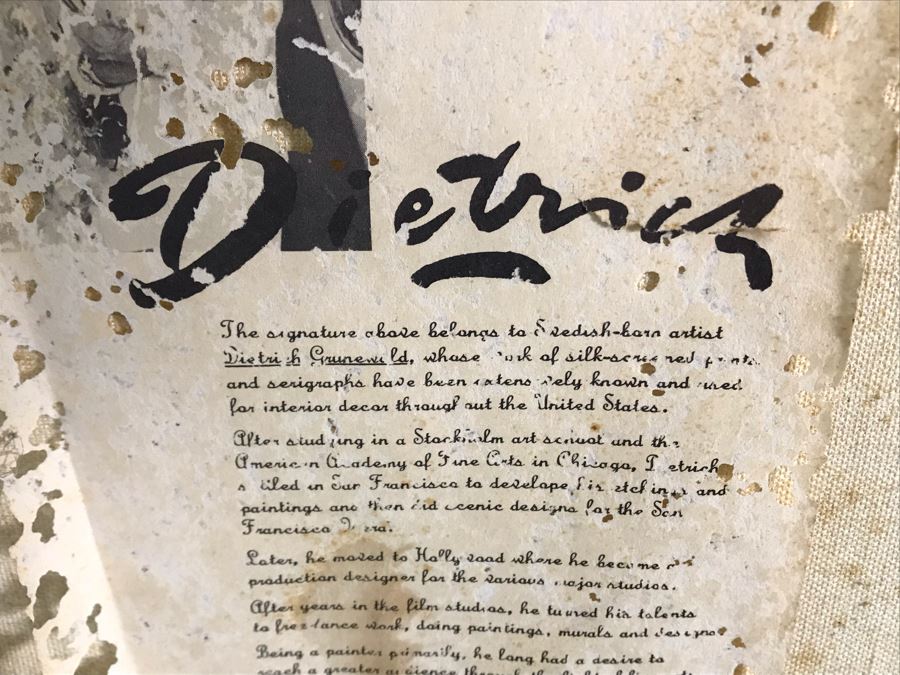 Dietrich
The signature above belongs to Swedish-born artist
Dietrich Grunewald, whose work of silk-screened prints
and serigraphs have been extensively known and used
for interior decor throughout the United States.
After studying in a Stockholm art school and the
American Academy of Fine Arts in Chicago, Dietrich
settled in San Francisco to develope his etchings and
paintings and then did scenic designs for the San
Francisco Opera.
Later, he moved to Hollywood where he became a
production designer for the various major studios.
After years in the film studios, he turned his talents
to free-lance work, doing paintings, murals and designs.
Being a painter primarily, he long had a desire to
reach a greater audience through the